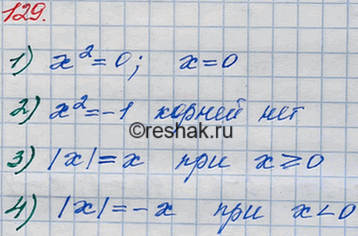 129.
1) x² = 0; x = 0
2) x² = -1 корней нет
©reshak.ru
3) |x| = x при x ≥ 0
4) |x| = -x при x < 0